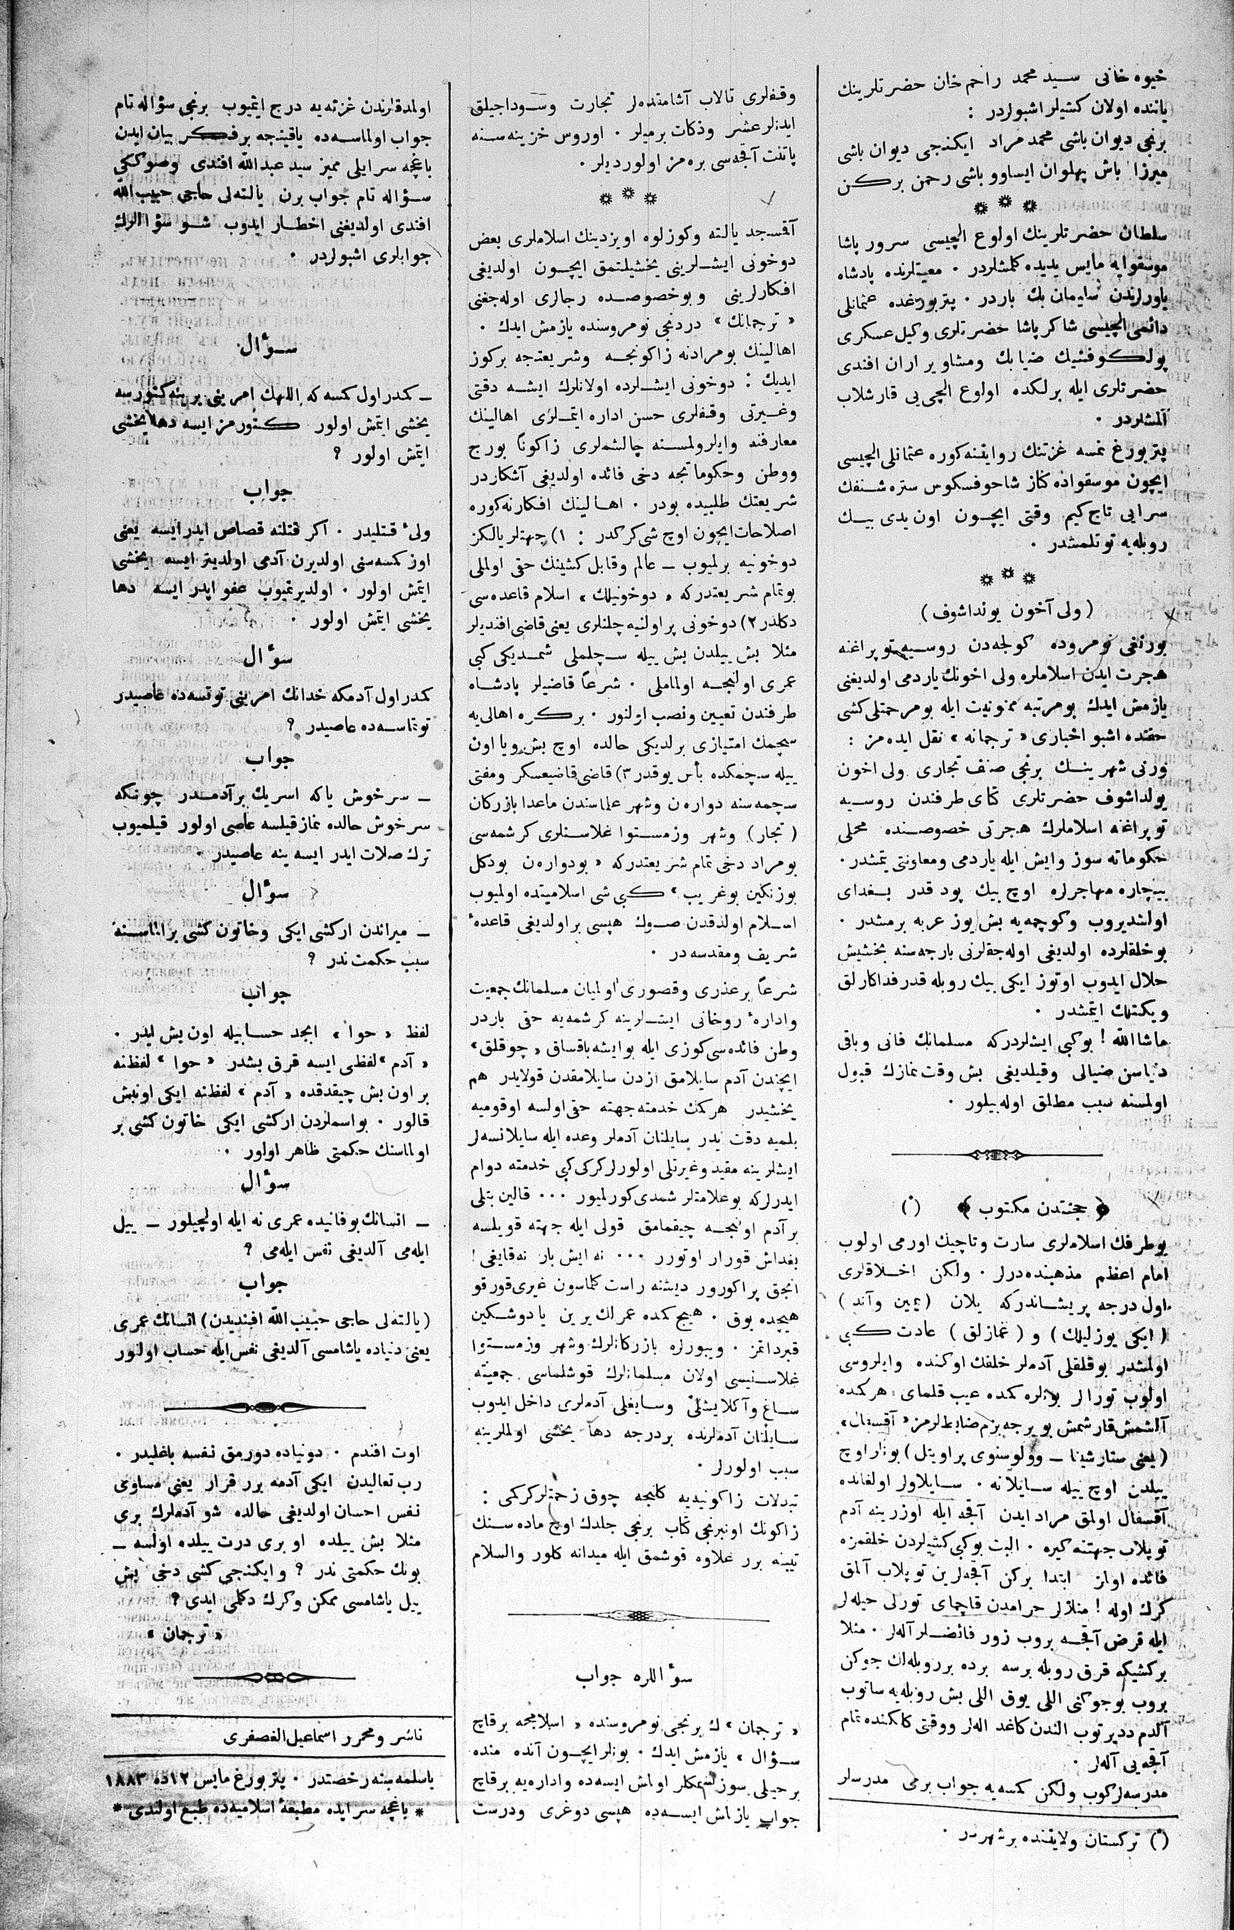 خیوه خانی سید محمد راحم خان حضرتلرینك
یاننده اولان كشیلر اشبولردر :
برنجی دیوان باشی محمد مراد ایكنجی دیوان باشی
میرزا باش پهلوان ایساوو باشی رحمن بركن
سلطان حضرتلرینك اولوغ الچیسی سرور پاشا
موسقوایه مایس یدیده كلمشلردر . معیتلرنده پادشاه
یاورلرندن سلیمان بك باردر . پتربورغده عثمانلی
دائمی الچیسی شاكر پاشا حضرتلری وكیل عسكری
پولكوفنیك ضیا بك ومشاویر اران افندی
حضرتلری ایله برلكده اولوغ الچی یی قارشلاب
آلمشلردر .
پتربورغ نمسه غزتنك روایتنه كوره عثمانلی الچیسی
ایچون موسقواده كناز شاحوفسكوس ستره شنفك
سرایی تاج كیم وقتی ایچون اون یدی بیك
روبله یه توتلمشدر .
( ولی آخون یولداشوف )
بورنغی نومروده كولجه دن روسیه توپراغنه
هجرت ایدن اسلاملره ولی اخونك یاردمی اولدیغنی
یازمش ایدك بومرتبه ممنونیت ایله بومرحمتلی كشی
حقنده اشبو اخباری « ترجمانه » نقل ایده مز :
ورنی شهرینك برنجی صنف تجاری ولی اخون
یولداشوف حضرتلری كتای طرفندن روسیه
توپراغنه اسلاملرك هجرتی خصوصنده محلی
حكوماته سوز وایش ایله یاردمی ومعاونتی یتمشدر .
بیچاره مهاجرلره اوچ بیك پود قدر بغدای
اولشدیروب وكوچمه یه بش یوز عربه برمشدر .
بوخلقلرده اولدیغی اوله جقلرنی بارجه سنه بخشیش
حلال ایدوب اوتوز ایكی بیك روبله قدر فداكارلق
ویكتلك ایتمشدر .
ماشاالله ! بوكبی ایشلردركه مسلمانك فانی وباقی
دنیاسن ضیالی وقیلدیغی بش وقت نمازك قبول
اولمسنه سبب مطلق اوله بیلور .
﴿ خجنتدن مكتوب ﴾ (*)
بوطرفك اسلاملری سارت وتاجیك اورمی اولوب
امام اعظم مذهبنده درلر . ولكن اخلاقلری
اول درجه پریشاندركه یلان ( یمین وآند )
( ایكی یوزلیلك ) و ( غمازلق ) عادت كبی
اولمشدر بوقلقلی آدملر خلفك اوكنده وایلروسی
اولوب تورالر بونلره كمده عیب قلمای . هركمده
آلشمش قارشمش بویرجه بزم ضابطلرمز « آقسقال »
( یعنی ستارشینا – وولوسنوی پراویتل ) بونلر اوچ
ییلدن اوچ ییله سایلانه . سایلاولر اولغانده
آقسقال اولمق مراد ایدن آقجه ایله اوزرینه آدم
توپلاب جهتنه كیره . البت بوكبی كشیلردن خلقمزه
فائده اولنز ابتدا بركن آقچه لرین توپلاب آلمق
كرك اوله ! منلالر حرامدن قاچمای تورلی حیله لر
ایله قرض آقجه بروب زور فائضلر آله لر . مثلا
بركشیكه قرق روبله برسه برده برروبله لك جوكن
بروب بوجوكنی اللی یوق اللی بش روبله یه ساتوب
آلدم ددیرتوب الندن كاغد اله لر ووقتی كلكنده تمام
آقچه یی آله لر .
مدرسه لركوب ولكن كمسه یه جواب برمی مدرسلر
(*) تركستان ولایتنده بر شهردر .
وقفلری تالاب آشامقده لر تجارت وسوداجیلق
ایدنلر عشر وذكات برمیلر . اوروس خزینه سنه
پاتنت آقجه سی بره مز اولوردیلر .
آقمسجد یالته وكوزلوه اویزدینك اسلاملری بعض
دوخونی ایشلرینی یخشیلتمق ایچون اولدیغی
افكارلرینی وبوخصوصده رجالری اوله جغنی
« ترجمانك » دردنجی نومروسنده یازمش ایدك .
اهالینك بومرادنه زاكونجه وشریعتجه بركوز
ایدیك : دوخونی ایشلرده اولانلرك ایشه دقتی
وغیرتی وقفلری حسن اداره ایتملری اهالینك
معارفنه وایلرولمسنه چالشملری زاكونا بورج
ووطن وحكوماتجه دخی فائده اولدیغی آشكاردر
شریعتك طلبیده بودر . اهالینك افكارنه كوره
اصلاحات ایچون اوچ شی كركدر : ١) جهتلر یالكز
دوخونیه برلمیوب – عالم وقابل كشینك حقی اولملی
بوتمام شریعتدركه « دوخونیلك » اسلام قاعده سی
دكلدر ٢) دوخونی پراولنیه چلنلری یعنی قاضی افندیلر
مثلا بش ییلدن بش ییله سچلملی شمدیكی كبی
عمری اولنجه اولماملی . شرعاً قاضیلر پادشاه
طرفندن تعیین ونصب اولنور . بركره اهالی یه
سچمك امتیازی برلدیكی حالده اوچ بش ویا اون
ییله سچمكده بأس یوقدر ٣) قاضی قاضیعسكر ومفتی
سچمه سنه دواره ن وشهر علماسندن ماعدا بازركان
( تجار ) وشهر وزمستوا غلاسنلری كرشمه سی
بومراد دخی تمام شریعتدركه « بودواره ن بودكل
بوزنكین بوغریب » كبی شی اسلامیتده اولمیوب
اسلام اولدقدن صوك هپسی بر اولدیغی قاعده ٔ
شریف ومقدسه در .
شرعاً بر عذری وقصوری اولمیان مسلمانك جمعیت
واداره ٔ روخانی ایشلرینه كرشمه یه حقی باردر
وطن فائده سی كوزی ایله بوایشه باقساق « چوقلق »
ایچندن آدم سایلامق ازدن سایلامقدن قولایدر هم
یخشیدر هركمك خدمته جهته حقی اولسه اوقومیه
بلمیه دقت یدر سایلنان آدملر وعده ایله سایلانسه لر
ایشلرینه مقید وغیرتلی اولورلر كركی كبی خدمته دوام
ایدرلركه بوعلامتلر شمدی كورلمیور ... قالین بتلی
بر آدم اولنجه چیقمامق قولی ایله جهته قویلسه
بغداش قورار اوتورر ... نه ایش بار نه قایغی !
انجق پراكورور دیشنه راست كلماسون غیری قورقو
هیچده یوق . هیچ كمده عمرلك یرین یادوشكین
قبرداتمز . ویبورلره بازركانلرك وشهر وزمستوا
غلاسنیسی اولان مسلمانلرك قوشلماسی جمعیته
ساغ وآكلایشلی وسایغلی آدملری داخل ایدوب
سایلنان آدملرنده بردرجه دها یخشی اولملرینه
سبب اولورلر .
تبدلات زاكونیه یه كلنجه چوق زحمتلر كركمی :
زاكونك اونبرنجی كتاب برنجی جلدك اوچ ماده سنك
تیبنه برر علاوه قوشمق ایله میدانه كلور والسلام
سؤاللره جواب
« ترجمان » ك برنجی نومروسنده « اسلامجه برقاچ
سؤال » یازمش ایدك . بونلر ایچون آنده منده
برخیلی سوز سویلشمكلر اولمش ایسه ده واداره یه برقاچ
جواب یازلمش ایسه ده هپسی دوغری ودرست
اولمدقلرندن غزته یه درج ایتمیوب برنجی سؤاله تام
جواب اولماسه ده یاقینجه برفكر بیان ایدن
باغچه سرایلی ممیز سید عبدالله افندی وصوككی
سؤاله تام جواب برن یالته لی حاجی حبیب الله
افندی اولدیغنی اخطار ایدوب شو سؤاللرك
جوابلری اشبولردر .
سؤال
– كمدر اول كمسه كه اللهك امرینی یرینه كتورسه
یخشی ایتمش اولور كتورمز ایسه دها یخشی
ایتمش اولور ؟
جواب
ولیٔ قتلیدر . اكر قتلنه قصاص ایدر ایسه یعنی
اوز كمسه سنی اولدیرن آدمی اولدیرتر ایسه یخشی
ایتمش اولور . اولدیرتمیوب عفو ایدر ایسه دها
یخشی ایتمش اولور .
سؤال
كمدر اول آدمكه خدانك امرینی توتسه ده عاصیدر
توتماسه ده عاصیدر ؟
جواب
– سرخوش یاكه اسریك بر آدمدر چونكه
سرخوش حالده نماز قیلسه عاصی اولور قیلمیوب
ترك صلات ایدر ایسه ینه عاصیدر .
سؤال
– میراندن ار كشی ایكی وخاتون كشی بر الماسنه
سبب حكمت ندر ؟
جواب
لفظ « حوا » ابجد حسابیله اون بش لیدر .
« آدم » لفظی ایسه قرق بشدر « حوا » لفظنه
بر اون بش چیقدقده « آدم » لفظنه ایكی اونبش
قالور . بواسملردن ار كشی ایكی خاتون كشی بر
اولماسنك حكمتی ظاهر اولور .
سؤال
– انسانك بوفانیده عمری نه ایله اولچیلور – ییل
ایله می آلدیغی نفس ایله می ؟
جواب
( یالته لی حاجی حبیب الله افندیدن ) انسانك عمری
یعنی دنیاده یاشامسی آلدیغی نفس ایله حساب اولنور
اوت افندم . دونیاده دورمق نفسه باغلیدر .
رب تعالیدن ایكی آدمه برر قرار یعنی مساوی
نفس احسان اولدیغی حالده شو آدملرك بری
مثلا بش ییلده او بری درت ییلده اولسه –
بونك حكمتی ندر ؟ وایكنجی كشی دخی بش
ییل یاشامسی ممكن وكرك دكلمی ایدی ؟
« ترجمان »
ناشر ومحرر اسماعیل الغصفری
باسلمه سنه رخصتدر . پتربورغ مایس ١٢ده ١٨٨٣
* باغچه سرایده مطبعهٔ اسلامیه ده طبع اولندی *